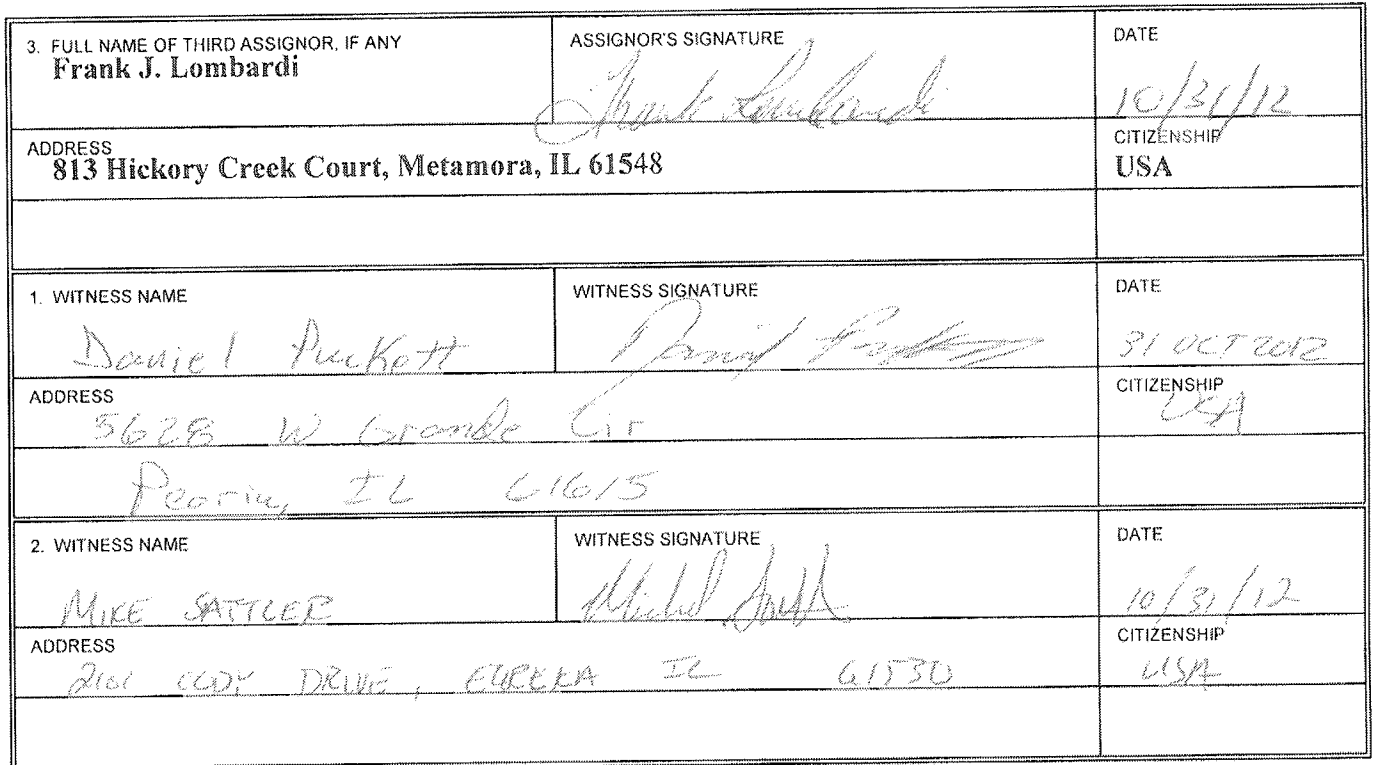 3. FULL NAME OF THIRD ASSIGNOR, IF ANY
Frank J. Lombardi
ASSIGNOR'S SIGNATURE
Frank Lombardi
DATE
10/31/12
ADDRESS
813 Hickory Creek Court, Metamora, IL 61548
CITIZENSHIP
USA
1. WITNESS NAME
Daniel Puckett
WITNESS SIGNATURE
DATE
31 OCT 2012
ADDRESS
5628 W Grande Cir
Peoria, IL 61615
CITIZENSHIP
USA
2. WITNESS NAME
MIKE SATTLER
WITNESS SIGNATURE
DATE
10/31/12
ADDRESS
CODY DRIVE, EUREKA IL 61530
CITIZENSHIP
USA